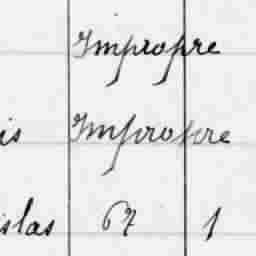 Impropre
is Impropre
islas 67 1